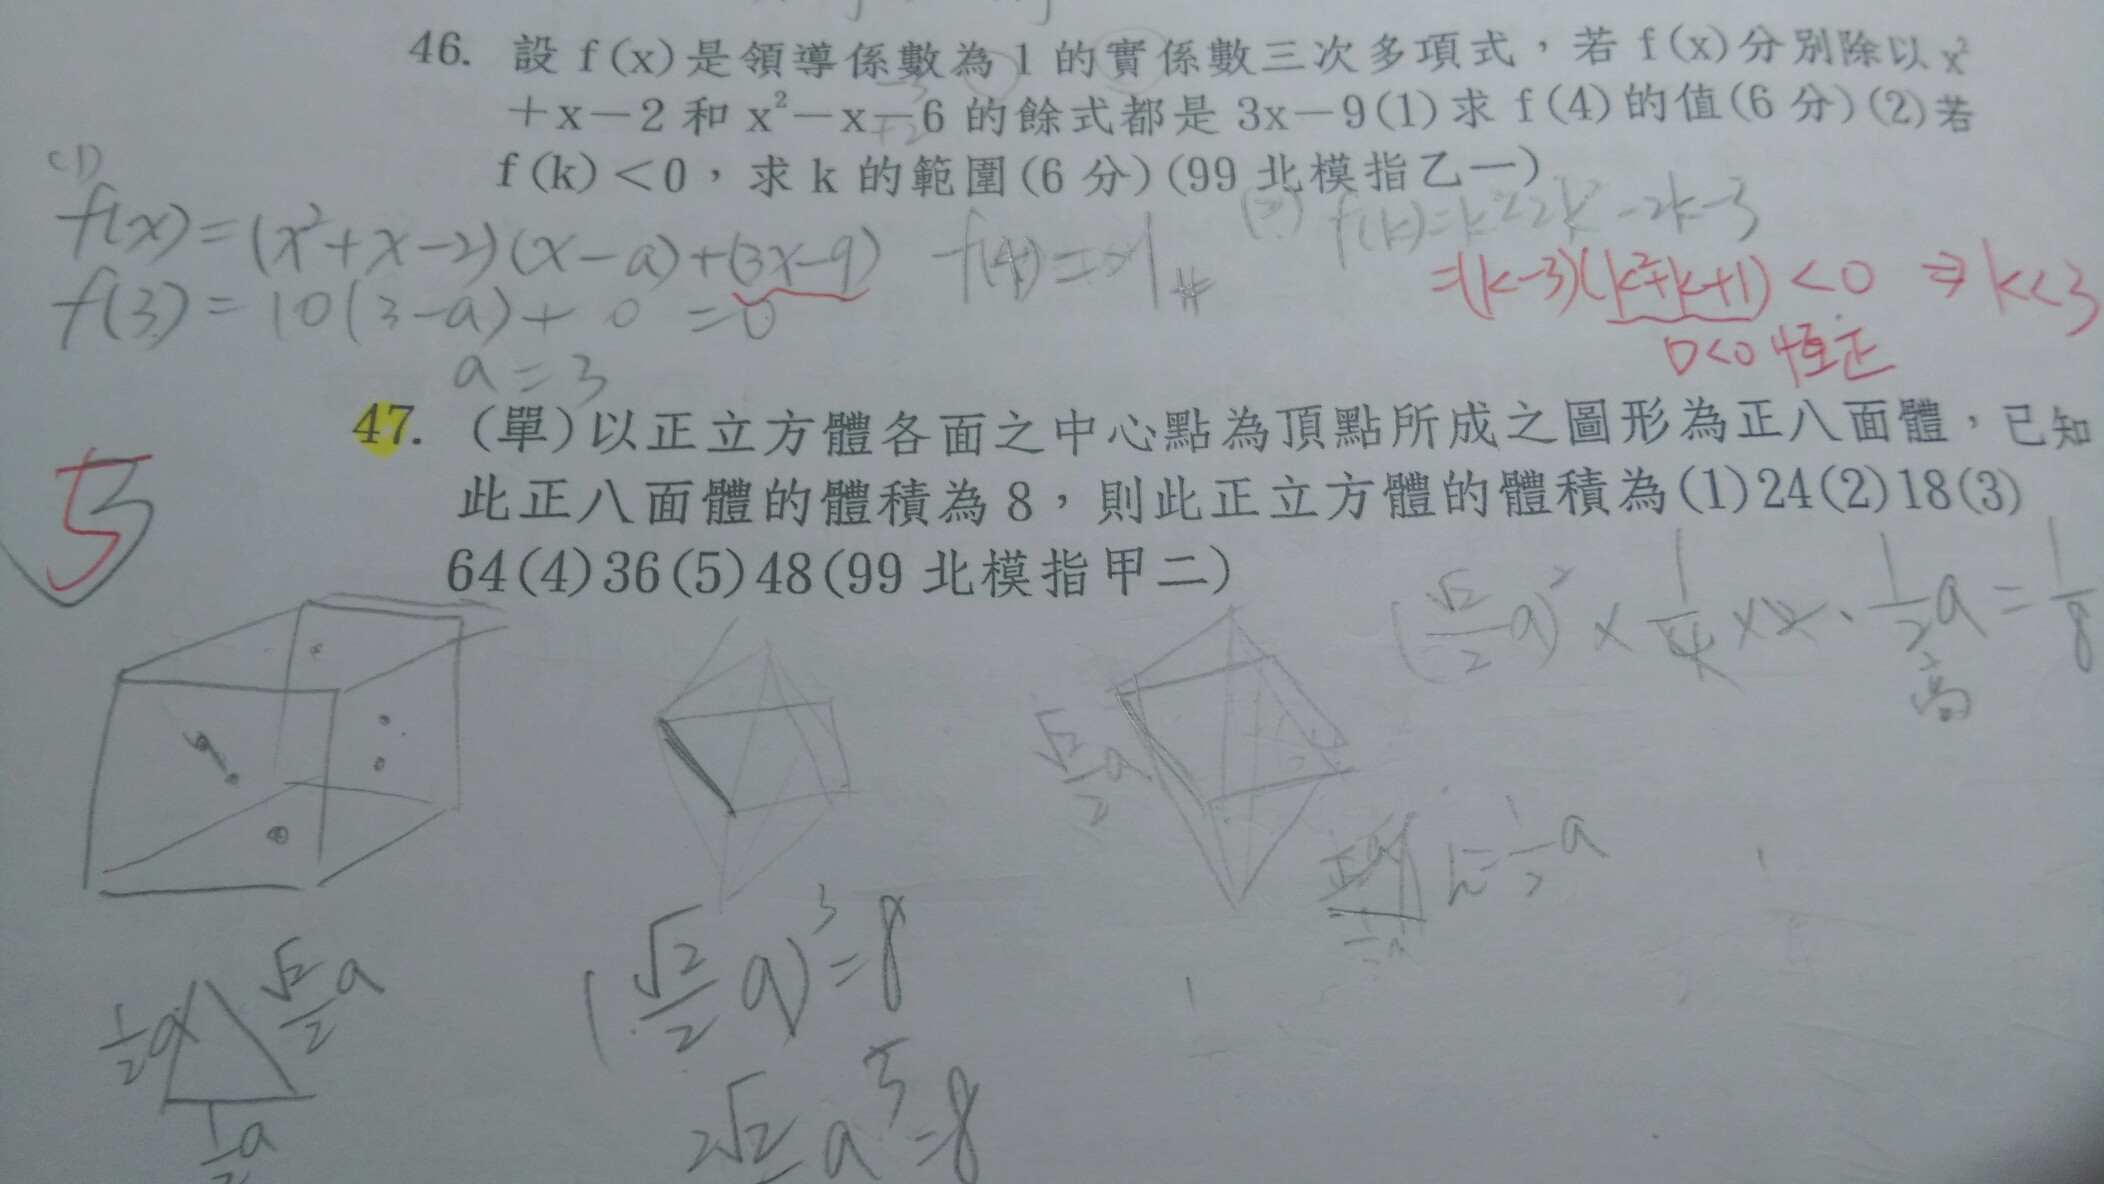 46. 設 f(x)是領導係數為 1 的實係數三次多項式，若 f(x)分別除以 x²
＋x－2 和 x²－x－6 的餘式都是 3x－9(1)求 f(4)的值(6 分)(2)若
f(k)＜0，求 k 的範圍(6 分)(99 北模指乙一)
(1)
f(x)=(x²+x-2)(x-a)+(3x-9)
f(3)=10(3-a)+0=0
a=3
(2) f(k)=k³-2k²-2k-3
=(k-3)(k²+k+1)<0 ⇒ k<3
D<0 恆正
5
47. (單)以正立方體各面之中心點為頂點所成之圖形為正八面體，已知
此正八面體的體積為 8，則此正立方體的體積為(1)24(2)18(3)
64(4)36(5)48(99 北模指甲二)
(√2/2 a)²×
1/2 a=1/8
高
√2/2 a
h=1/2 a
1/2 a
√2/2 a
1/2 a
(√2/2 a)³=8